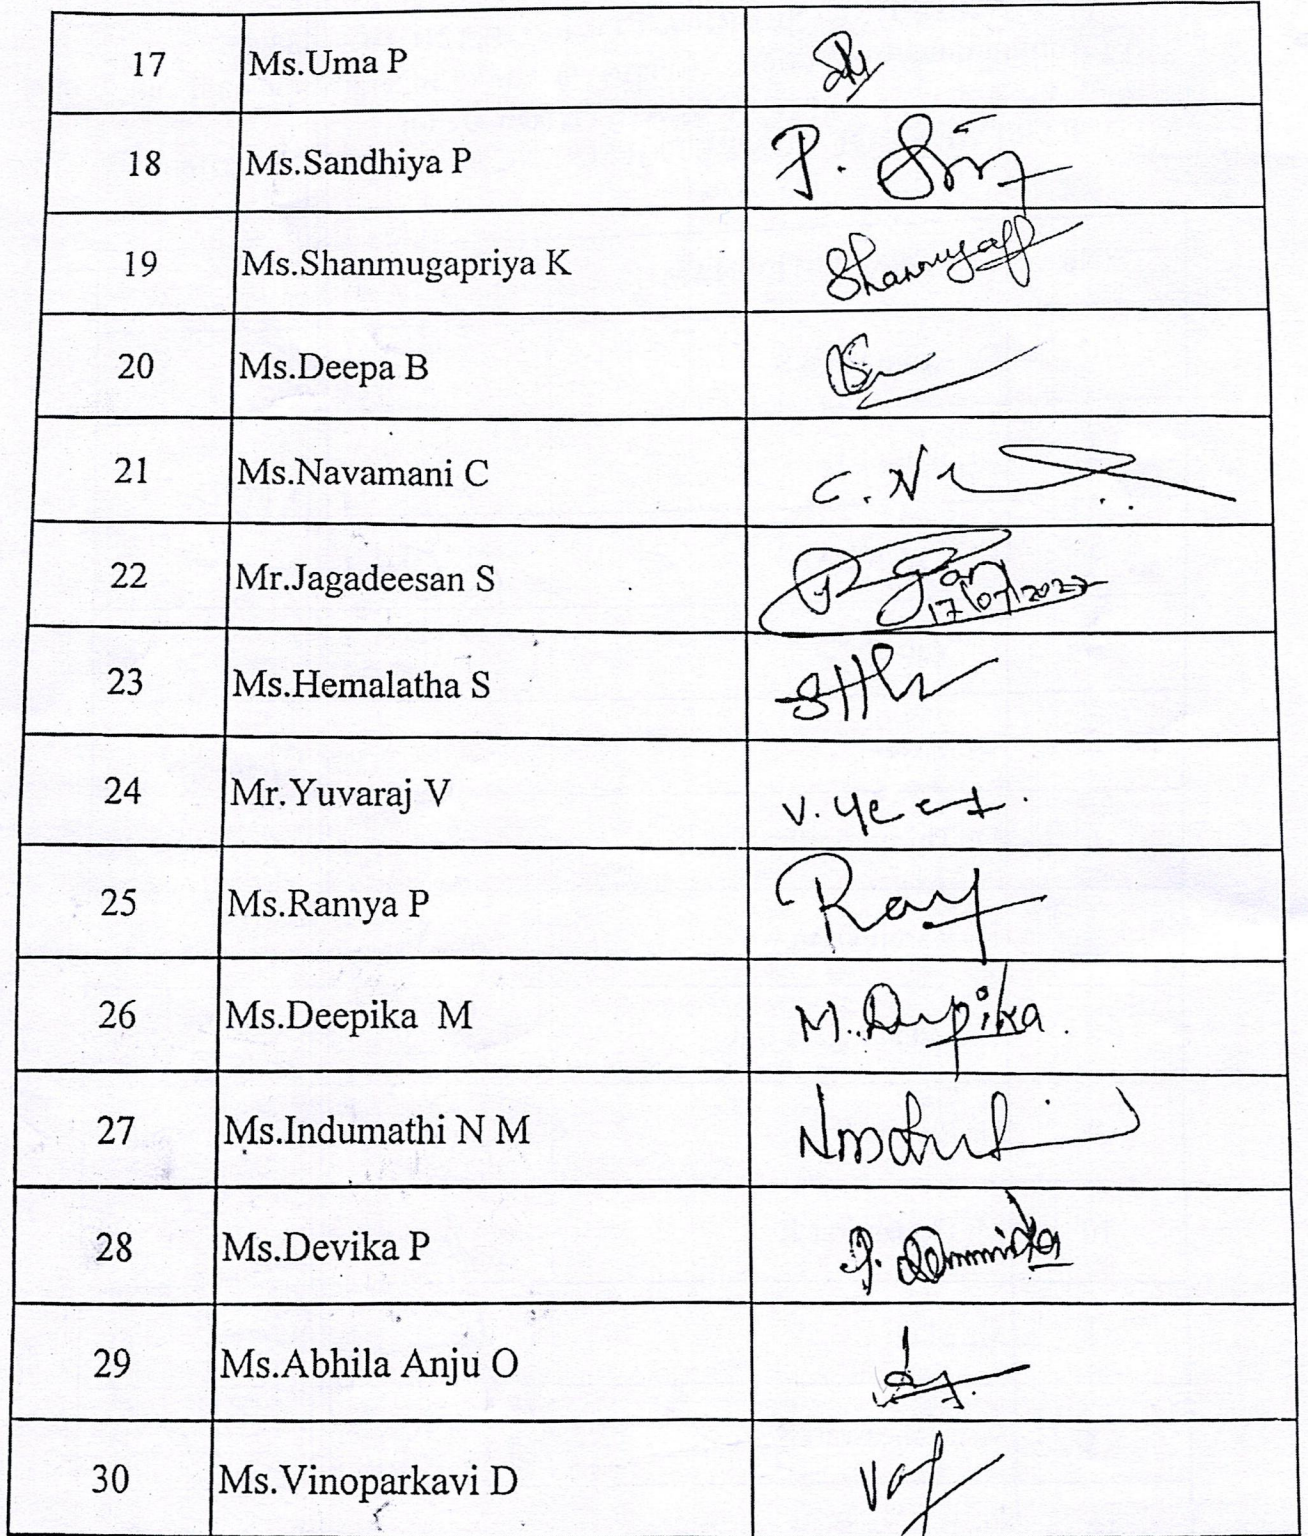 17 Ms.Uma P
18 Ms.Sandhiya P P.
19 Ms.Shanmugapriya K
20 Ms.Deepa B
21 Ms.Navamani C C. N
22 Mr.Jagadeesan S
17/07/2027
23 Ms.Hemalatha S
24 Mr.Yuvaraj V V.
25 Ms.Ramya P Ray
26 Ms.Deepika M M. Deepika
27 Ms.Indumathi N M
28 Ms.Devika P P.
29 Ms.Abhila Anju O
30 Ms.Vinoparkavi D